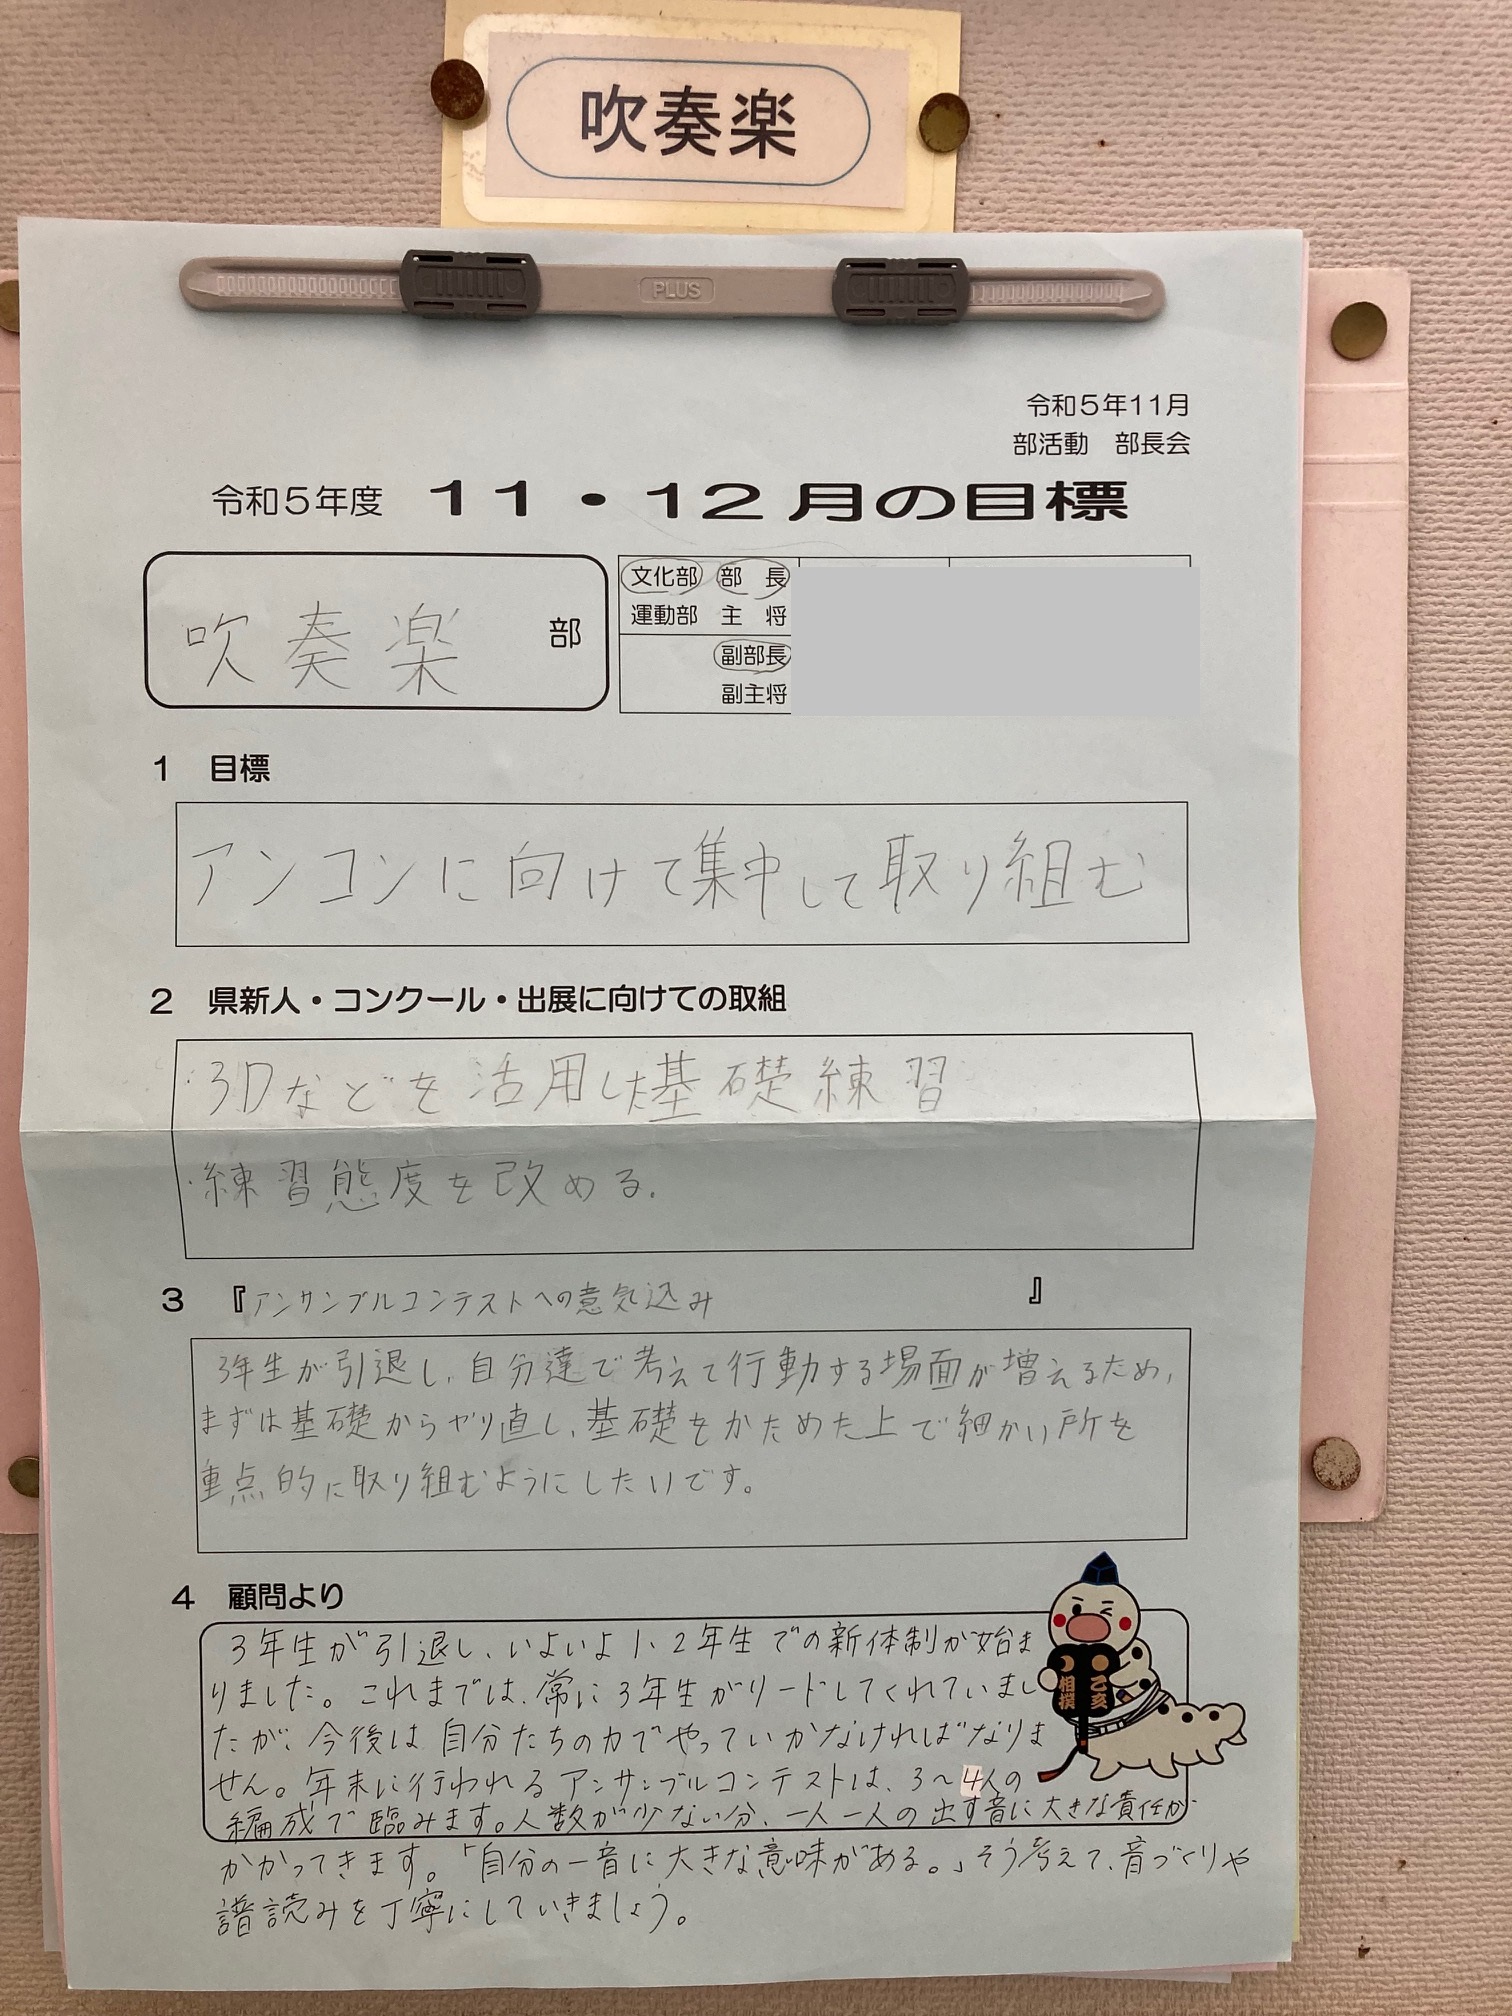 吹奏楽
PLUS
令和5年11月
部活動　部長会
令和5年度　11・12月の目標
吹奏楽 部
文化部　部　長
運動部　主　将
副部長
副主将
1　目標
アンコンに向けて集中して取り組む
2　県新人・コンクール・出展に向けての取組
・3Dなどを活用した基礎練習
・練習態度を改める.
3　『アンサンブルコンテストへの意気込み』
3年生が引退し、自分達で考えて行動する場面が増えるため、
まずは基礎からやり直し、基礎をかためた上で細かい所を
重点的に取り組むようにしたいです。
4　顧問より
3年生が引退し、いよいよ1、2年生での新体制が始ま
りました。これまでは、常に3年生がリードしてくれていまし
たが、今後は自分たちの力でやっていかなければなりま
せん。年末に行われるアンサンブルコンテストは、3～4人の
編成で臨みます。人数が少ない分、一人一人の出す音に大きな責任が
かかってきます。「自分の一音に大きな意味がある。」そう考えて、音づくりや
譜読みを丁寧にしていきましょう。
相撲
乙亥